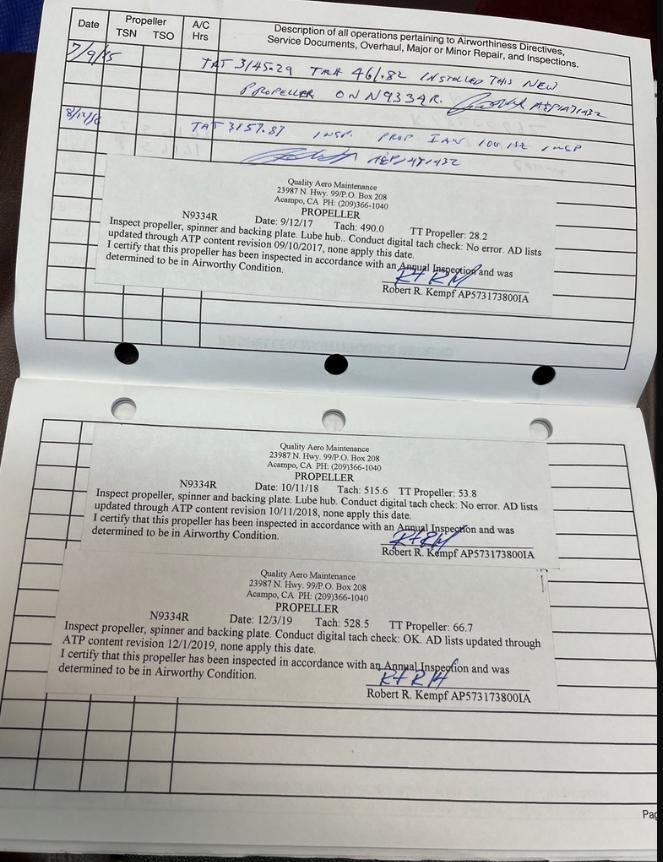 Date Propeller A/C Description of all operations pertaining to Airworthiness Directives,
TSN TSO Hrs Service Documents, Overhaul, Major or Minor Repair, and Inspections.
7/9/15 TAT 3145.29 TAA 461.82 INSTALLED THIS NEW
PROPELLER ON N9334R.
TAT 3157.87 INSP. PROP IAW 100 HR INSP
Quality Aero Maintenance
23987 N. Hwy. 99/P.O. Box 208
Acampo, CA PH: (209)366-1040
PROPELLER
N9334R Date: 9/12/17 Tach: 490.0 TT Propeller: 28.2
Inspect propeller, spinner and backing plate. Lube hub.. Conduct digital tach check: No error. AD lists
updated through ATP content revision 09/10/2017, none apply this date.
I certify that this propeller has been inspected in accordance with an Annual Inspection and was
determined to be in Airworthy Condition.
Robert R. Kempf AP573173800IA
Quality Aero Maintenance
23987 N. Hwy. 99/P.O. Box 208
Acampo, CA PH: (209)366-1040
PROPELLER
N9334R Date: 10/11/18 Tach: 515.6 TT Propeller: 53.8
Inspect propeller, spinner and backing plate. Lube hub. Conduct digital tach check: No error. AD lists
updated through ATP content revision 10/11/2018, none apply this date.
I certify that this propeller has been inspected in accordance with an Annual Inspection and was
determined to be in Airworthy Condition.
Robert R. Kempf AP573173800IA
Quality Aero Maintenance
23987 N. Hwy. 99/P.O. Box 208
Acampo, CA PH: (209)366-1040
PROPELLER
N9334R Date: 12/3/19 Tach: 528.5 TT Propeller: 66.7
Inspect propeller, spinner and backing plate. Conduct digital tach check: OK. AD lists updated through
ATP content revision 12/1/2019, none apply this date.
I certify that this propeller has been inspected in accordance with an Annual Inspection and was
determined to be in Airworthy Condition.
Robert R. Kempf AP573173800IA